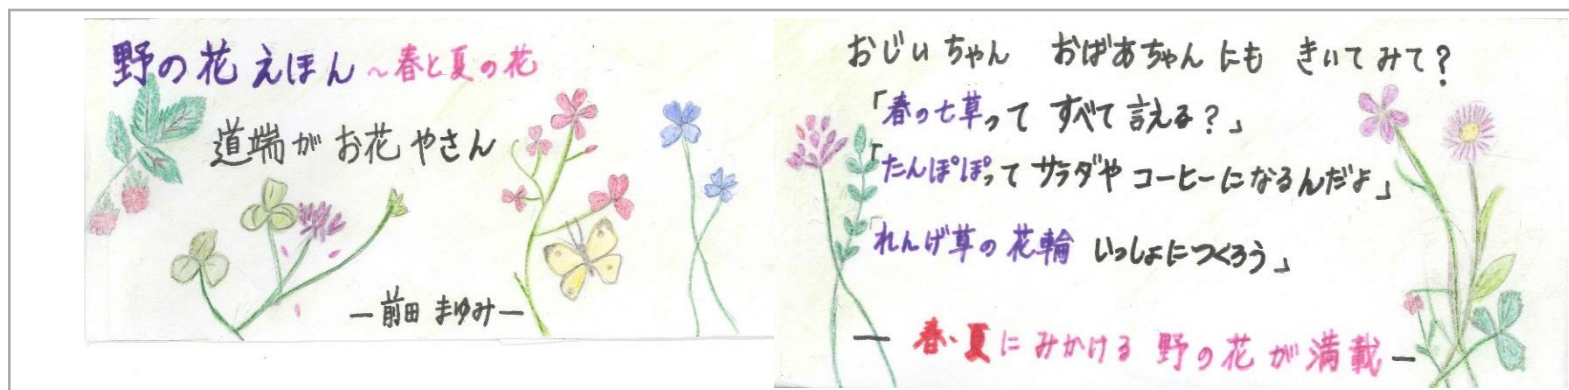 野の花えほん～春と夏の花
道端がお花やさん
―前田まゆみ―
おじいちゃん　おばあちゃんにも　きいてみて？
「春の七草って　すべて言える？」
「たんぽぽって　サラダや　コーヒーになるんだよ」
「れんげ草の花輪　いっしょにつくろう」
―　春・夏にみかける　野の花が満載―